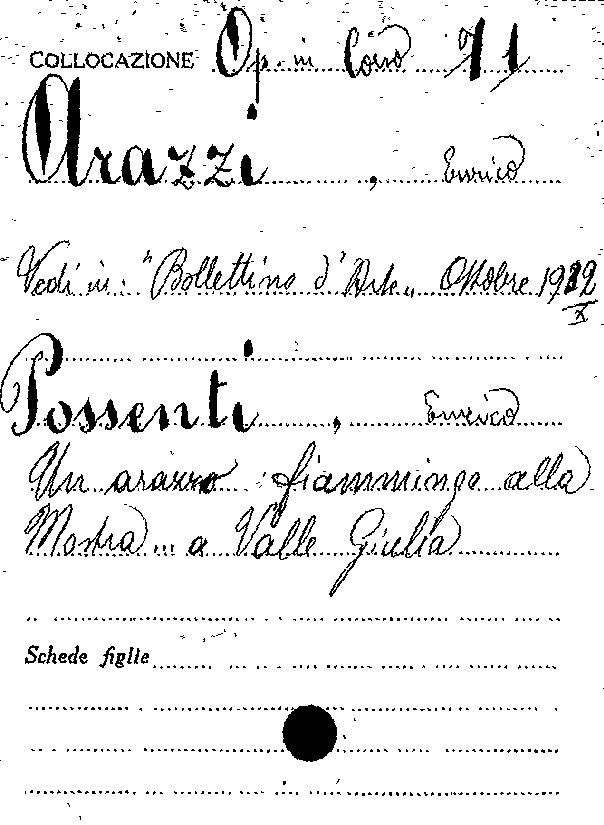 COLLOCAZIONE Op. in Corso 71
Arazzi , Enrico
Vedi in: "Bollettino d'Arte„ Ottobre 1932
X
Possenti , Enrico
Un arazzo fiammingo alla
Mostra ... a Valle Giulia
Schede figlie